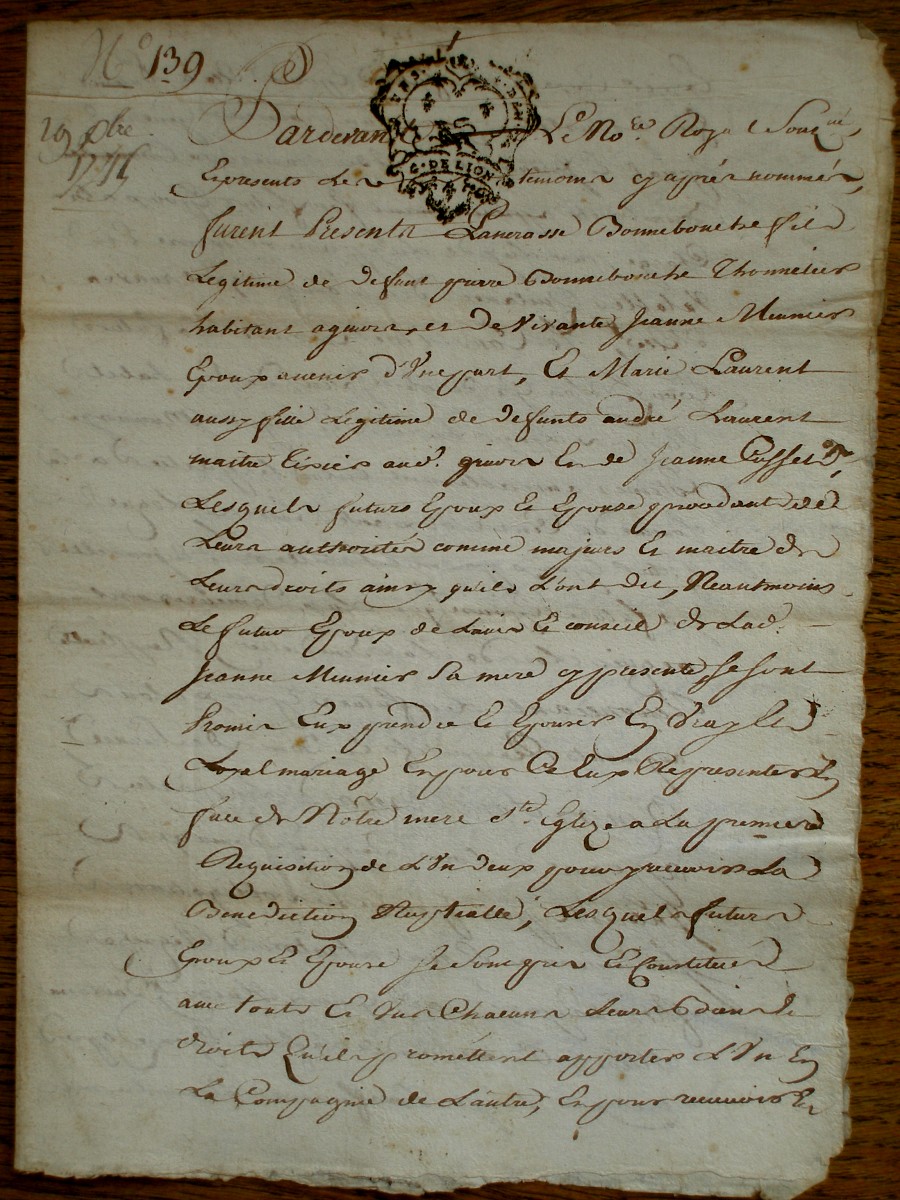 N° 139
19 xbre
Pardevant Le No.re Royal Sousg.né
Et presents Les temoins cy après nommés,
furent Presents Pancrasse Bonnebouche fils
Legitime de defunt pierre Bonnebouche Thonnelier
habitant a givors, et de vivante Jeanne Meunier
Epoux avenir d'Une part, Et Marie Laurent
aussy fille Legitime de defunts andré Laurent
maitre aud. givors Et de Jeanne
Lesquels futurs Epoux Et Epouse procedant de
Leurs authorités comme majeurs Et maitre de
Leurs droits ainsy qu'ils L'ont dit, Neantmoins
Le futur Epoux de L'avis Et conseil de Lad.
Jeanne Meunier Sa mere cy presente, se sont
Promis Eux prendre Et Epouser En vray Et
Loyal mariage Et pour Ce Eux Representer En
face de Nôtre mere S.te Eglize a La premiere
Requisition de L'Un deux pour y recevoir La
Benediction Nuptialle, Lesquels futurs
Epoux Et Epouse Se Sont pris Et Constitués
avec touts Et Uns Chacuns Leurs Biens Et
droits Qu'ils promettent apporter L'Un En
La Compagnie de L'autre, Et pour recevoir Et
G. DE LION